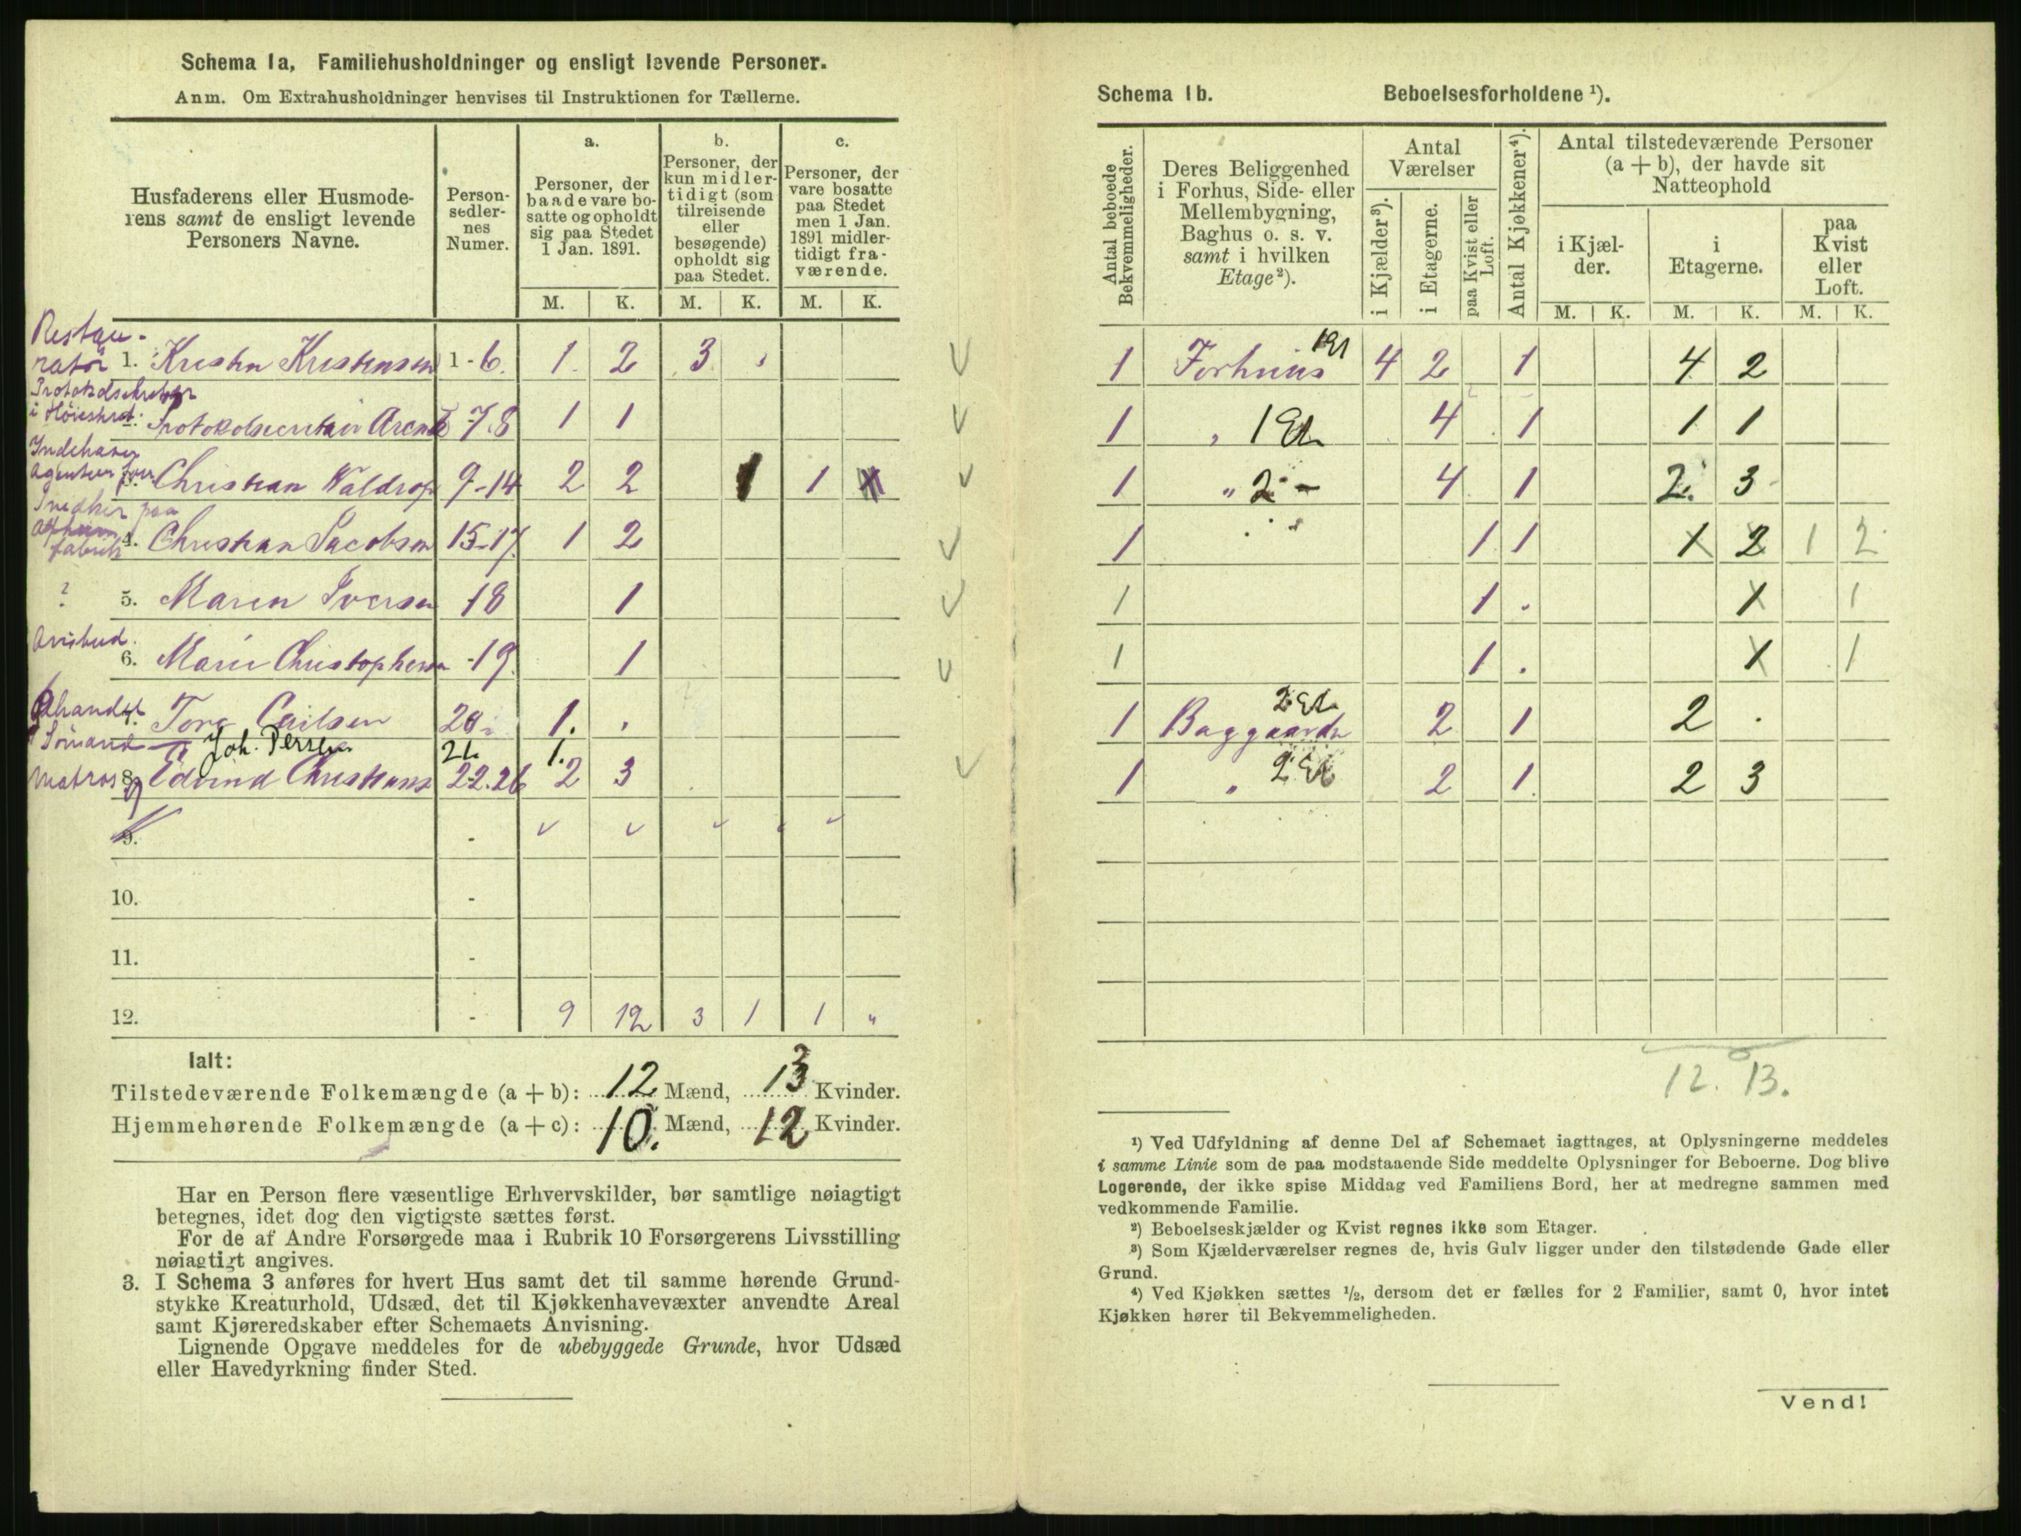 Schema 1a, Familiehusholdninger og ensligt levende Personer.
Anm. Om Extrahusholdninger henvises til Instruktionen for Tællerne.
Husfaderens eller Husmoderens samt de ensligt levende Personers Navne.
Personsedlernes Numer.
a. Personer, der baade vare bosatte og opholdt sig paa Stedet 1 Jan. 1891.
b. Personer, der kun midlertidigt (som tilreisende eller besøgende) opholdt sig paa Stedet.
c. Personer, der vare bosatte paa Stedet men 1 Jan. 1891 midlertidigt fraværende.
M. K. M. K. M. K.
Restauratør 1. Kristen Kristensen 1-6. 1. 2 3
i Høiesteret Protokolsecretair 7.8 1 1
Indehaver Agentur 3. Christian Waldrop 9-14 2 2 1 1
fabrik 4. Christian Jacobsen 15-17. 1 2
? 5. Maren Iversen -18 1
Avisbud. 6. Marie Christophersen -19. 1
7. Carlsen 20 1.
Sømand Joh. 1.
Matros 8. Edvind Christians 22.26 2 3
9. -
10. -
11. -
12. - 9 12 3 1 1 "
Ialt:
Tilstedeværende Folkemængde (a + b): 12 Mænd, 13 Kvinder.
Hjemmehørende Folkemængde (a + c): 10. Mænd, 12 Kvinder.
Har en Person flere væsentlige Erhvervskilder, bør samtlige nøiagtigt
betegnes, idet dog den vigtigste sættes først.
For de af Andre Forsørgede maa i Rubrik 10 Forsørgerens Livsstilling
nøiagtigt angives.
3. I Schema 3 anføres for hvert Hus samt det til samme hørende Grund-
stykke Kreaturhold, Udsæd, det til Kjøkkenhavevæxter anvendte Areal
samt Kjøreredskaber efter Schemaets Anvisning.
Lignende Opgave meddeles for de ubebyggede Grunde, hvor Udsæd
eller Havedyrkning finder Sted.
Schema 1b. Beboelsesforholdene ¹).
Antal beboede Bekvemmeligheder.
Deres Beliggenhed i Forhus, Side- eller Mellembygning, Baghus o. s. v. samt i hvilken Etage²).
Antal Værelser
i Kjælder³).
i Etagerne.
paa Kvist eller Loft.
Antal Kjøkkener⁴).
Antal tilstedeværende Personer (a + b), der havde sit Natteophold
i Kjælder. i Etagerne. paa Kvist eller Loft.
M. K. M. K. M. K.
1 Forhuus 1 Et 4 2 1 4 2
1 " 1 Et 4 1 1 1
1 " 2 - 4 1 2. 3
1 " 1 1 1 2 1 2
1 1 . 1 1
1 1 . 1 1
1 Baggaarde 2 Et 2 1 2 .
1 " 2 Et 2 1. 2 3
12. 13.
¹) Ved Udfyldning af denne Del af Schemaet iagttages, at Oplysningerne meddeles
i samme Linie som de paa modstaaende Side meddelte Oplysninger for Beboerne. Dog blive
Logerende, der ikke spise Middag ved Familiens Bord, her at medregne sammen med
vedkommende Familie.
²) Beboelseskjælder og Kvist regnes ikke som Etager.
³) Som Kjælderværelser regnes de, hvis Gulv ligger under den tilstødende Gade eller
Grund.
⁴) Ved Kjøkken sættes ½, dersom det er fælles for 2 Familier, samt 0, hvor intet
Kjøkken hører til Bekvemmeligheden.
Vend!